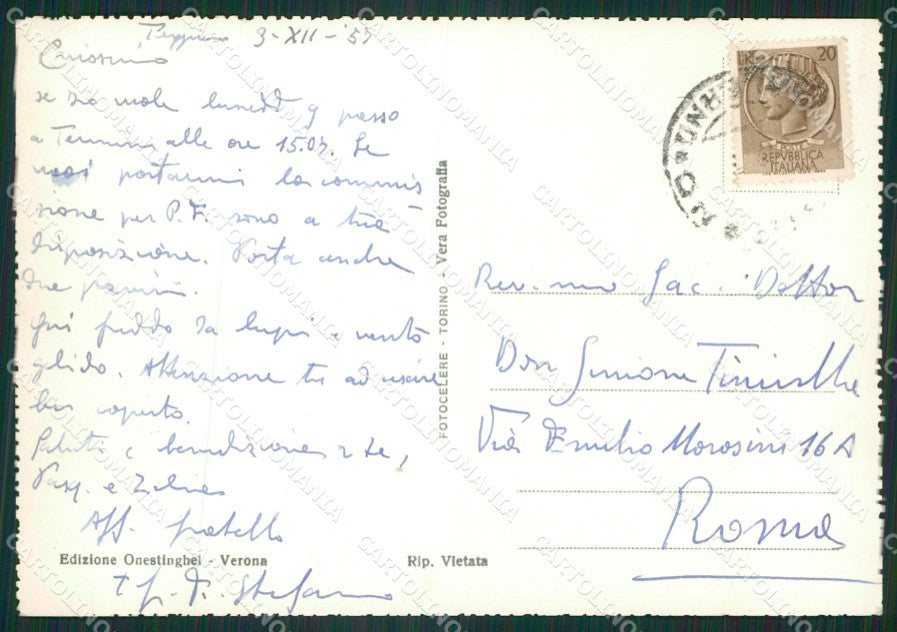 3-XII-57
Carissimo
se Dio vuole lunedì 9 passo
a Termini alle ore 15.07. Se
vuoi portarmi la commis
sione per P. F. sono a tua
disposizione. Porta anche
due panini.
Qui freddo da lupi e vento
gelido. Attenzione tu ad uscire
ben coperto.
Saluti e benedizione a te,
Pasq. e
Aff. fratello
+ fr. Stefano
Edizione Onestinghel - Verona
Rip. Vietata
FOTOCELERE - TORINO - Vera Fotografia
20
REPVBBLICA
ITALIANA
Rev.mo Sac. Dottor
Don Simone
Via Emilio Morosini 16A
Roma
CARTOLINOMANIA